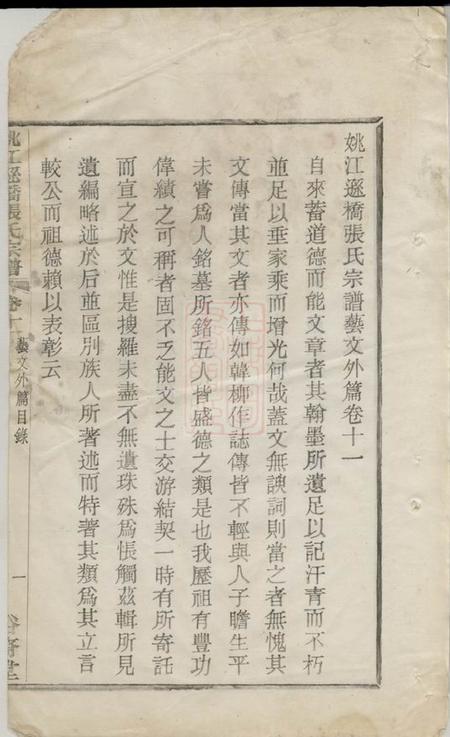 姚江遯橋張氏宗譜藝文外篇卷十一
自來蓄道德而能文章者其翰墨所遺足以記汗青而不朽
並足以垂家乘而增光何哉蓋文無諛詞則當之者無愧其
文傳當其文者亦傳如韓柳作誌傳皆不輕與人子瞻生平
未嘗爲人銘墓所銘五人皆盛德之類是也我歷祖有豐功
偉績之可稱者固不乏能文之士交游結契一時有所寄託
而宣之於文惟是搜羅未盡不無遺珠殊爲悵觸茲輯所見
遺編略述於后並區別族人所著述而特著其類爲其立言
較公而祖德賴以表彰云
姚江遯橋張氏宗譜
卷十一
藝文外篇目錄
一